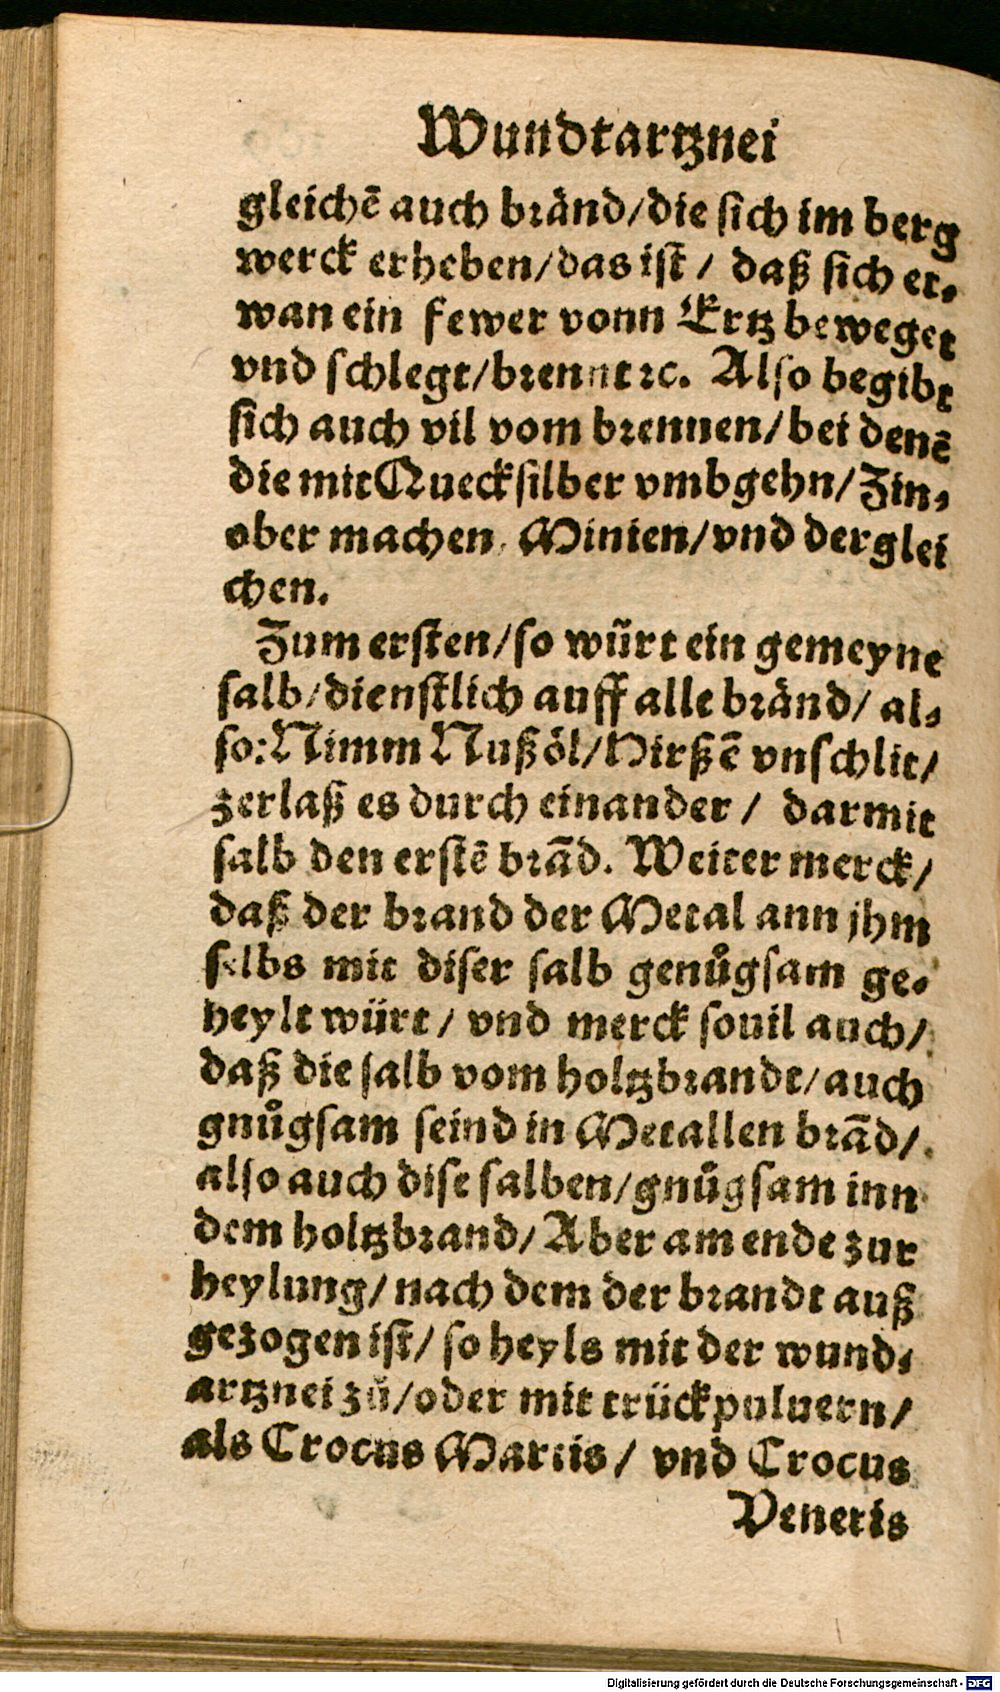 Wundtartznei
gleichẽ auch bränd/die sich im berg
werck erheben/das ist / daß sich et⸗
wan ein fewer vonn Ertz beweget
vnd schlegt/brennt ꝛc. Also begibt
sich auch vil vom brennen/bei denẽ
die mit Quecksilber vmbgehn/Zin⸗
ober machen, Minien/vnd derglei
chen.
Zum ersten/so würt ein gemeyne
salb/dienstlich auff alle bränd/ al⸗
so: Nimm Nußöl/Hirßẽ vnschlit/
zerlaß es durch einander / darmit
salb den erstẽ brãd. Weiter merck/
daß der brand der Metal ann jhm
selbs mit diser salb genůgsam ge⸗
heylt würt / vnd merck souil auch/
daß die salb vom holtzbrandt/auch
gnůgsam seind in Metallen brãd/
also auch dise salben/gnůgsam inn
dem holtzbrand/ Aber am ende zur
heylung/nach dem der brandt auß
gezogen ist/ so heyls mit der wund⸗
artznei zů/oder mit trückpuluern/
als Crocus Martis / vnd Crocus
Veneris
Digitalisierung gefördert durch die Deutsche Forschungsgemeinschaft - DFG